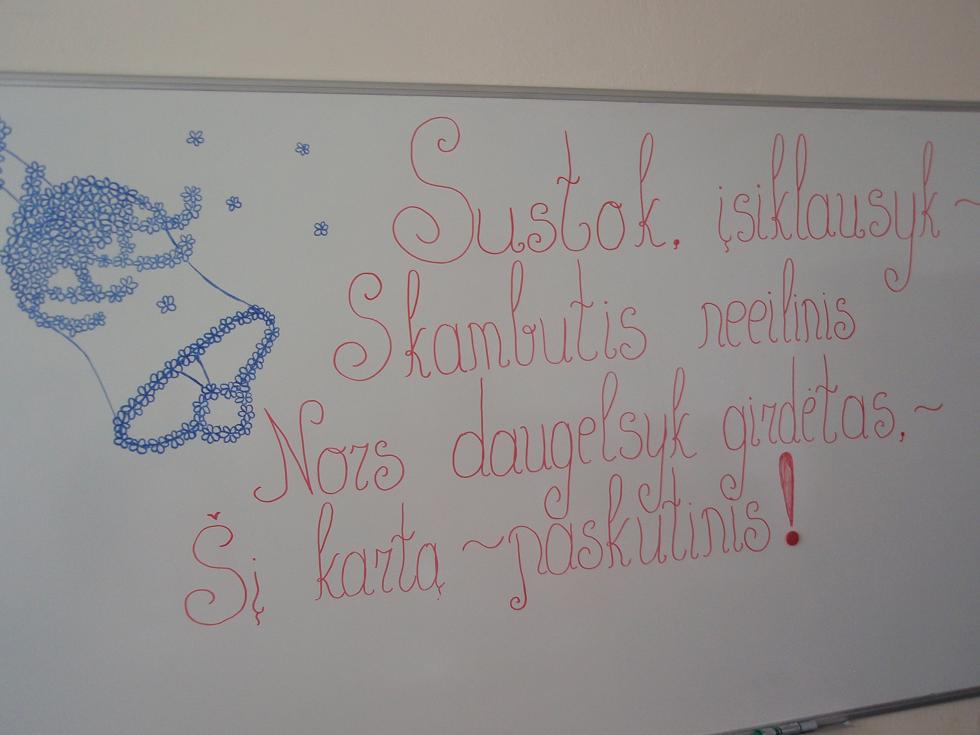 Sustok, įsiklausyk ~
Skambutis neeilinis
Nors daugelsyk girdėtas, ~
Šį kartą ~ paskutinis!